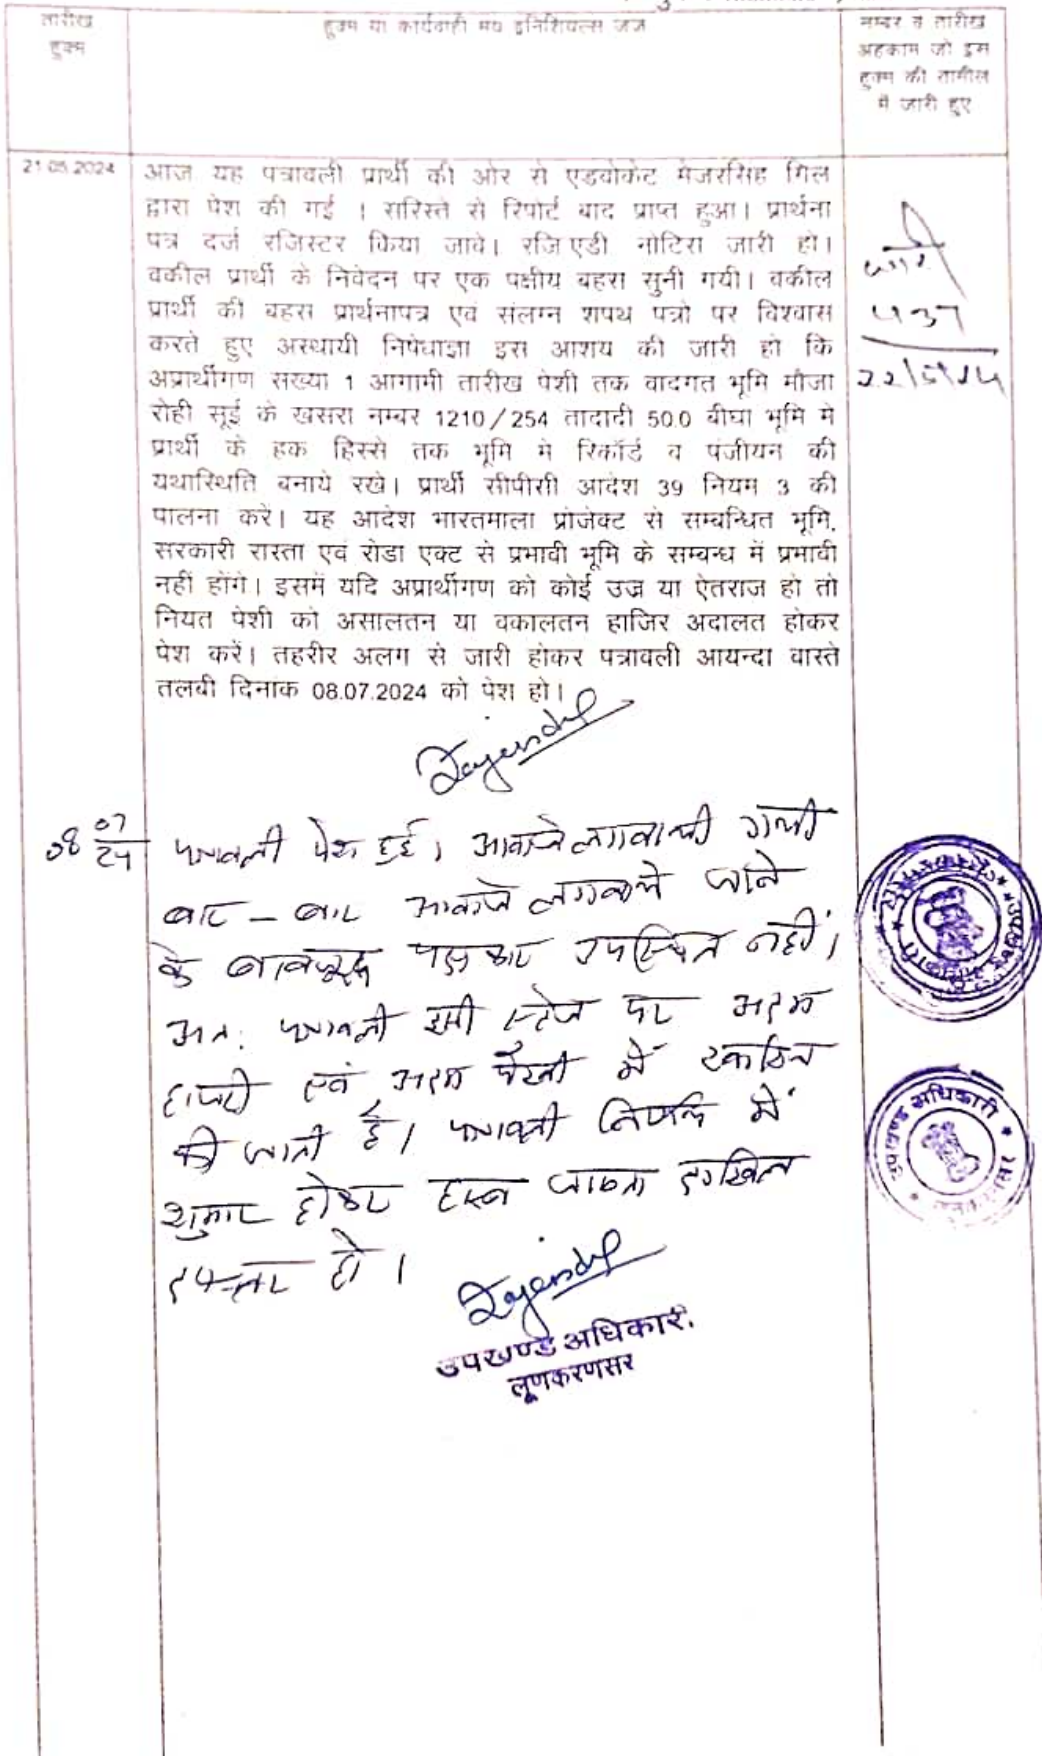 तारीख
हुक्म
हुक्म या कार्यवाही मय इनिशियल्स जज
नम्बर व तारीख
अहकाम जो इस
हुक्म की तामील
में जारी हुए
21.05.2024
आज यह पत्रावली प्रार्थी की ओर से एडवोकेट मेजरसिंह गिल
द्वारा पेश की गई । सरिस्ते से रिपोर्ट बाद प्राप्त हुआ। प्रार्थना
पत्र दर्ज रजिस्टर किया जावे। रजि एडी नोटिस जारी हो।
वकील प्रार्थी के निवेदन पर एक पक्षीय बहस सुनी गयी। वकील
प्रार्थी की बहस प्रार्थनापत्र एवं संलग्न शपथ पत्रो पर विश्वास
करते हुए अस्थायी निषेधाज्ञा इस आशय की जारी हो कि
अप्रार्थीगण सख्या 1 आगामी तारीख पेशी तक वादगत भूमि मौजा
रोही सूई के खसरा नम्बर 1210/254 तादादी 50.0 बीघा भूमि मे
प्रार्थी के हक हिस्से तक भूमि मे रिकॉर्ड व पंजीयन की
यथास्थिति बनाये रखे। प्रार्थी सीपीसी आदेश 39 नियम 3 की
पालना करें। यह आदेश भारतमाला प्रोजेक्ट से सम्बन्धित भूमि,
सरकारी रास्ता एवं रोडा एक्ट से प्रभावी भूमि के सम्बन्ध में प्रभावी
नहीं होंगे। इसमें यदि अप्रार्थीगण को कोई उज्र या ऐतराज हो तो
नियत पेशी को असालतन या वकालतन हाजिर अदालत होकर
पेश करें। तहरीर अलग से जारी होकर पत्रावली आयन्दा वास्ते
तलबी दिनांक 08.07.2024 को पेश हो।
जारी
22/5/24
08 07/24
पत्रावली पेश हुई। आवाजे लगवायी गयी
बार - बार आवाजे लगवाये जाने
के बावजूद पक्षकार उपस्थित नहीं।
अत: पत्रावली इसी स्टेज पर अदम
हाजरी एवं अदम पैरवी में खारिज
की जाती है। पत्रावली निर्णित में
शुमार होकर बाद जाब्ता दाखिल
दफ्तर हो।
उपखण्ड अधिकारी
लूणकरणसर
उपखण्ड अधिकारी